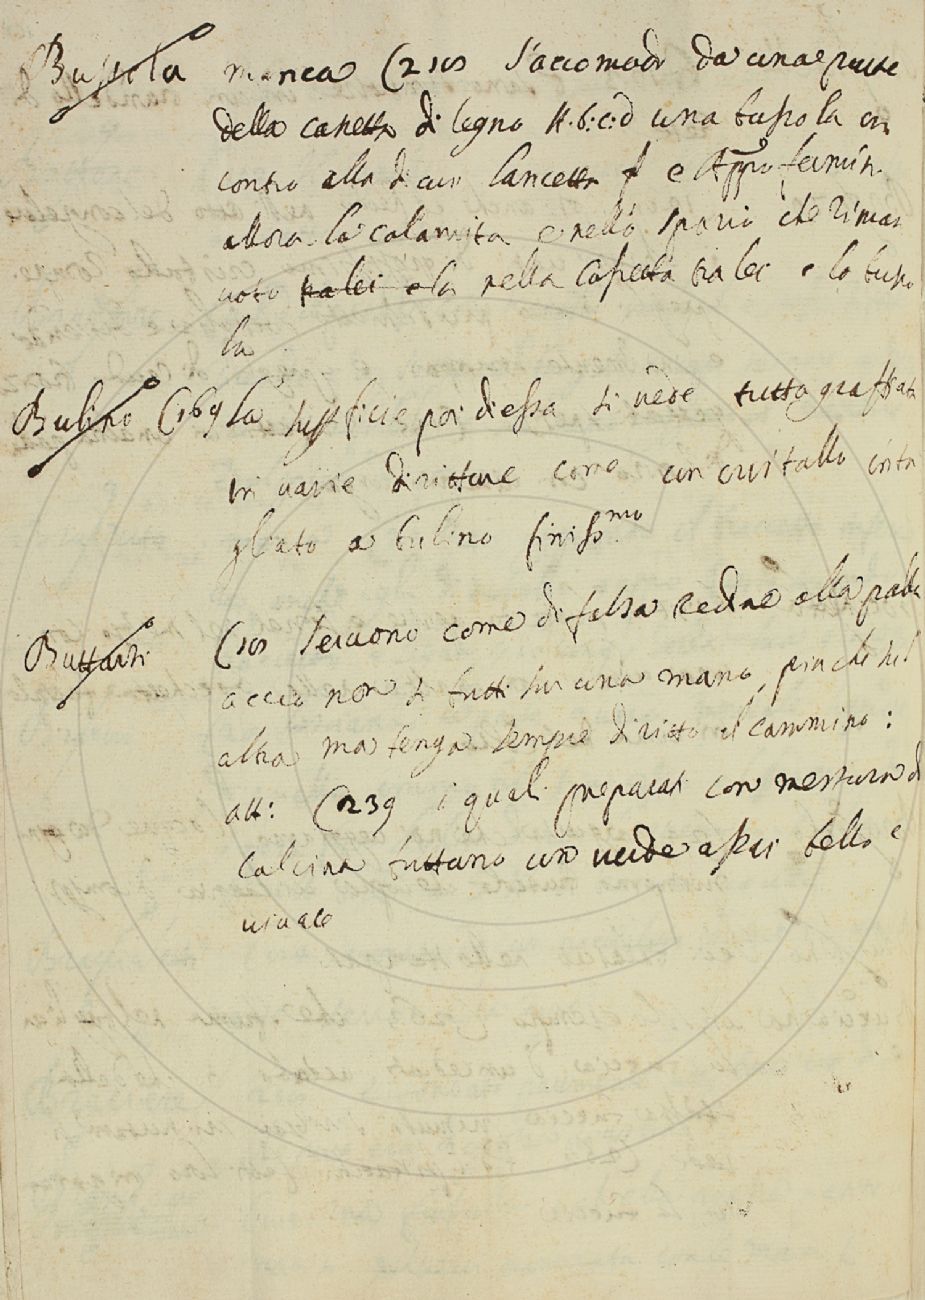 Bussola manca (210 s'accomodi da una parte
della casetta di legno A.b:c:d una bussola in
contro alla di cui lancetta f e Appro fermin
allora la calamita e nello spazio che riman
voto tra lei e la nella casetta tra lei e la busso
la
Bulino (169 la superficie poi d'essa si vede tutta graffiata
in varie diritture come un cristallo inta
gliato a bulino finiss.mo
Buttarsi (101 servono come di falsa redine alla palla
accio non si butti su una mano, piu che sul
altra ma tenga sempre diritto il cammino:
att: (239 i quali preparati con mestura di
calcina buttano un verde assai bello e
vivace